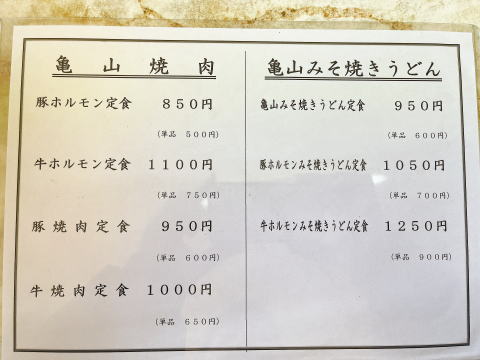 亀山焼肉
豚ホルモン定食 850円
(単品 500円)
牛ホルモン定食 1100円
(単品 750円)
豚焼肉定食 950円
(単品 600円)
牛焼肉定食 1000円
(単品 650円)
亀山みそ焼きうどん
亀山みそ焼きうどん定食 950円
(単品 600円)
豚ホルモンみそ焼きうどん定食 1050円
(単品 700円)
牛ホルモンみそ焼きうどん定食 1250円
(単品 900円)